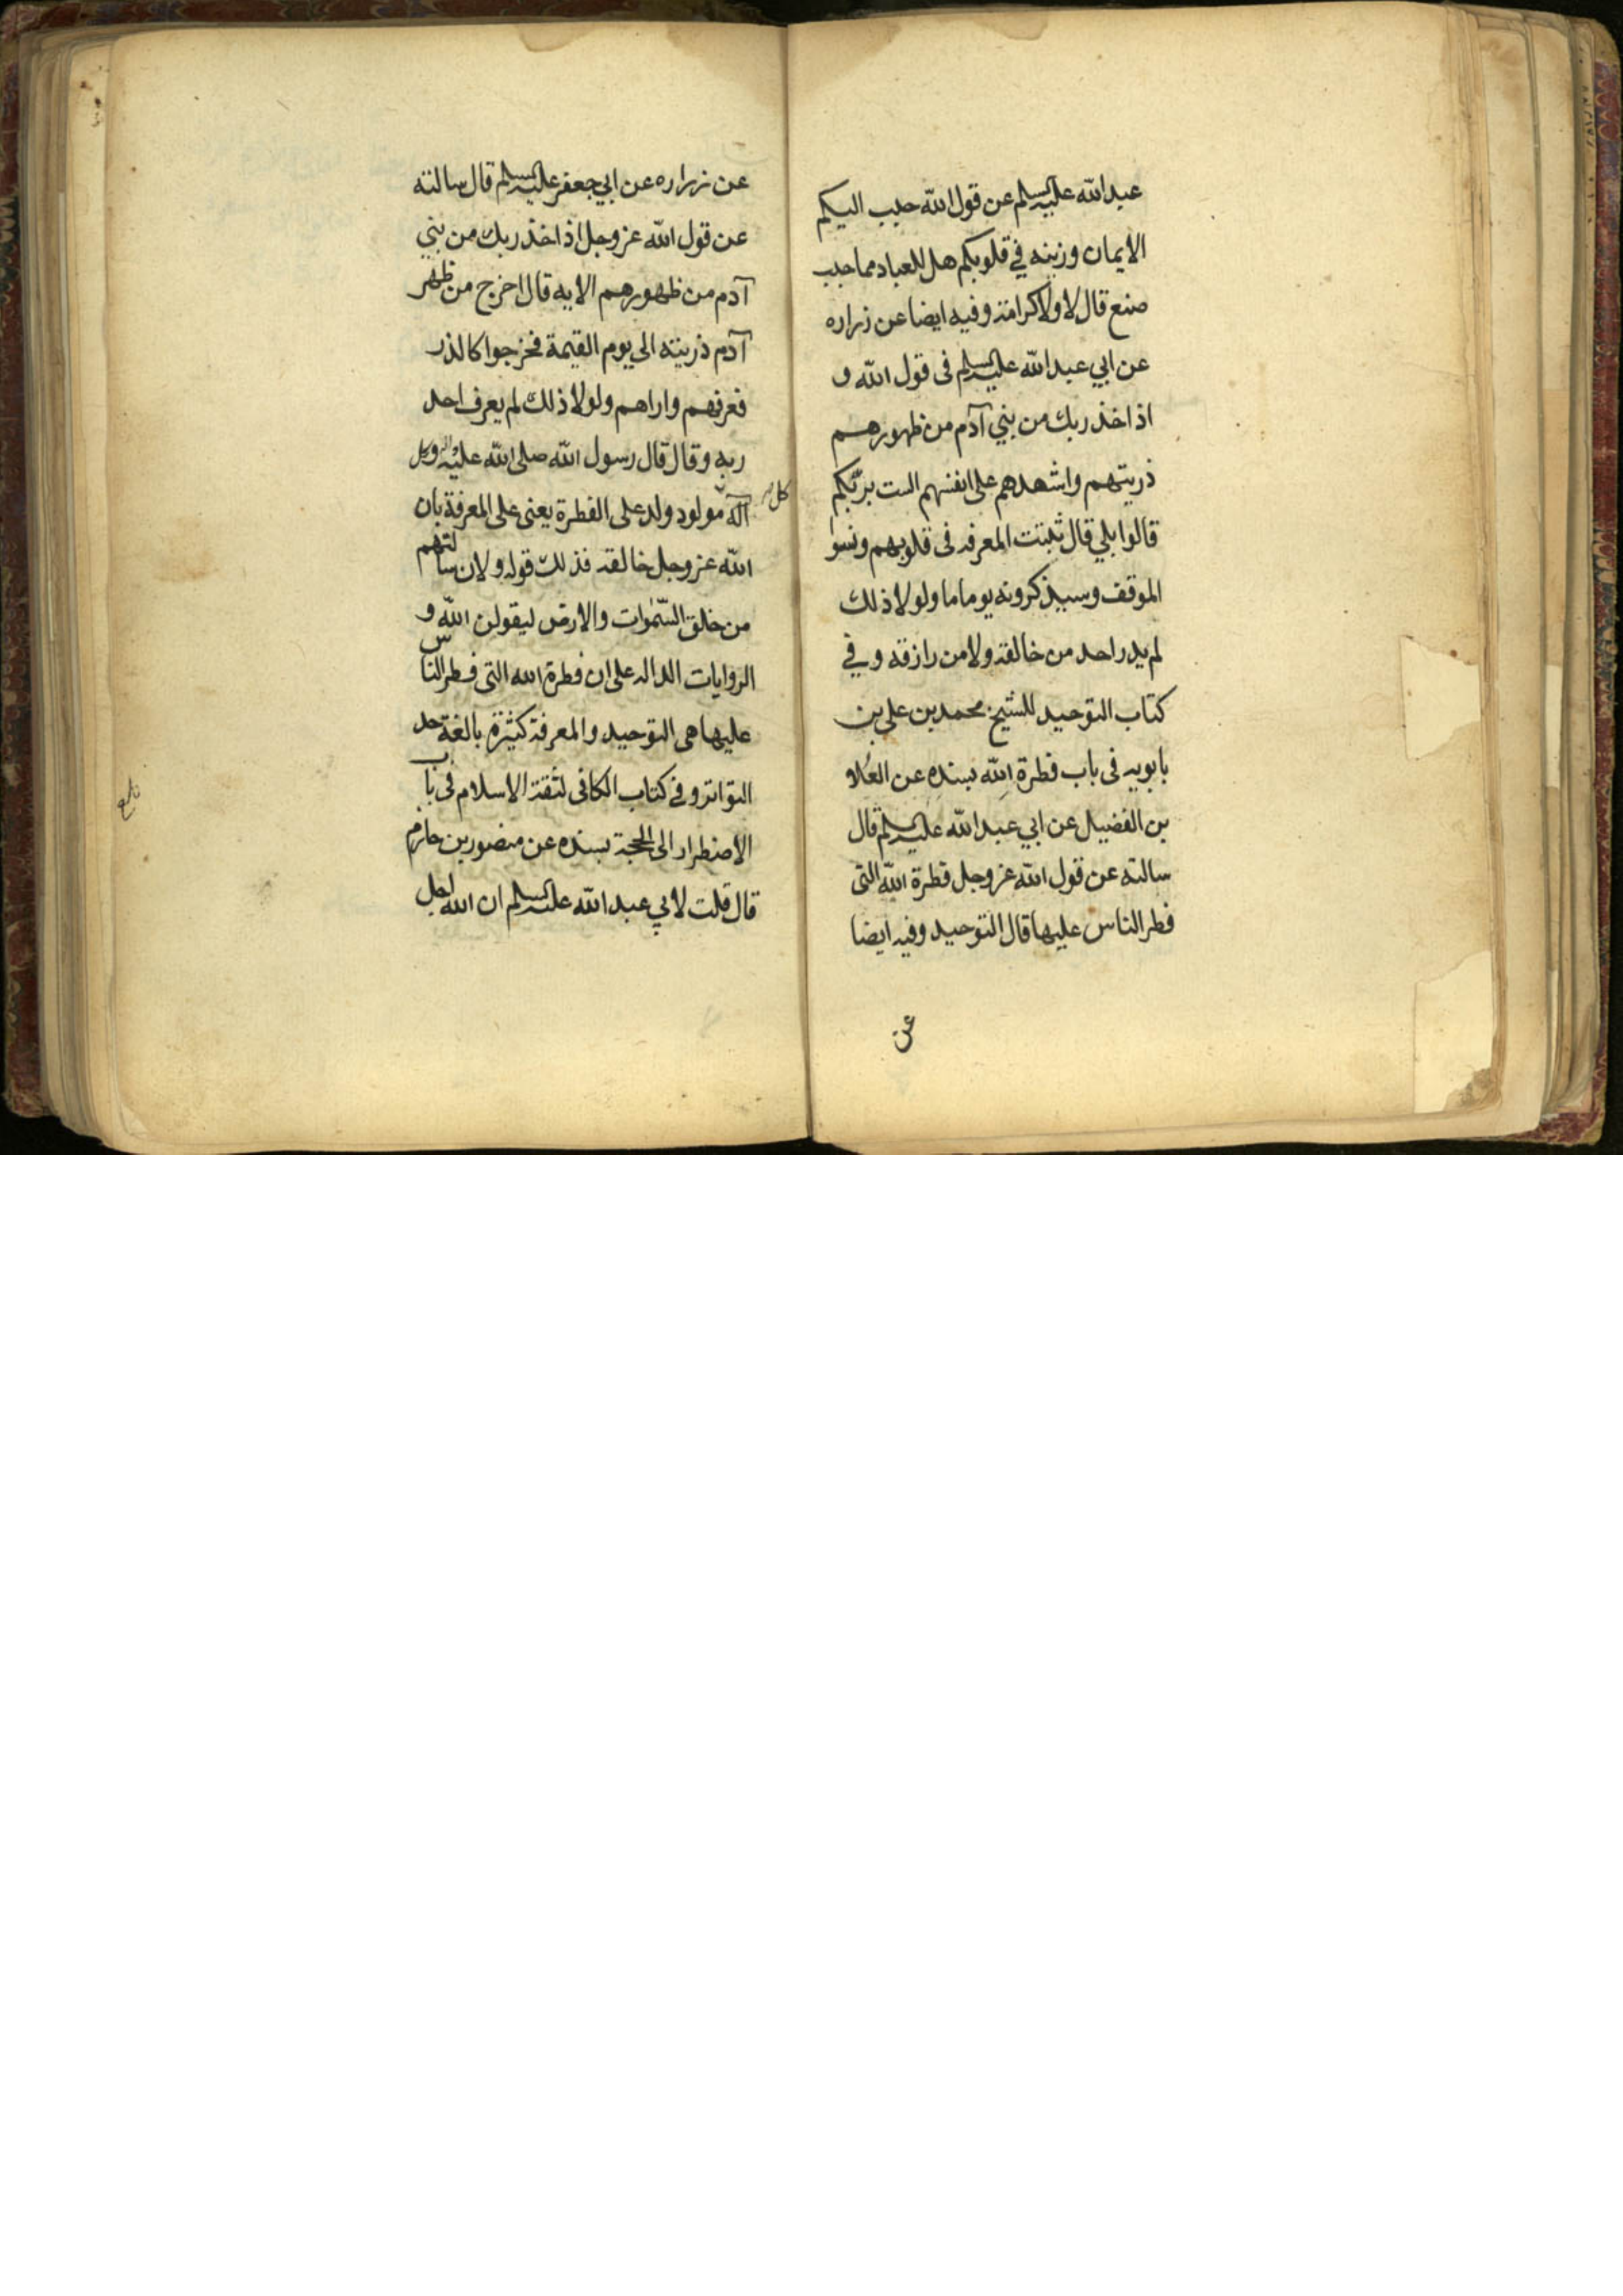 عبدالله عليه السلم عن قول الله حبب اليكم
الايمان وزينه في قلوبكم هل للعباد مما حبب
صنع قال لا ولا كرامة وفيه ايضا عن زراره
عن ابي عبدالله عليه السلم فى قول الله و
اذ اخذ ربك من بني آدم من ظهورهم
ذريتهم واشهدهم على انفسهم الست بربّكم
قالوا بلي قال ثبتت المعرفه فى قلوبهم ونسوا
الموقف وسيذكرونه يوما ما ولولا ذلك
لم يدر احد من خالقه ولا من رازقه وفي
كتاب التوحيد للشيخ محمد بن على بن
بابويه فى باب فطرة الله بسنده عن العلا
بن الفضيل عن ابي عبدالله عليه السلم قال
سالته عن قول الله عز وجل فطرة الله التى
فطر الناس عليها قال التوحيد وفيه ايضا
عن
عن زراره عن ابي جعفر عليه السلم قال سالته
عن قول الله عز وجل اذ اخذ ربك من بني
آدم من ظهورهم الايه قال اخرج من ظهر
آدم ذريته الى يوم القيمة فخرجوا كالذر
فعرفهم واراهم ولولا ذلك لم يعرف احد
ربه وقال قال رسول الله صلى الله عليه واله وكل
كل
آله مولود ولد على الفطرة يعنى على المعرفة بان
الله عز وجل خالقه فذلك قوله ولان سالتهم
من خلق السّموات والارض ليقولن الله و
الروايات الداله على ان فطرة الله التى فطر الناس
عليها هى التوحيد والمعرفة كثيرة بالغة حد
التواتر وفي كتاب الكافى لثقة الاسلام فى باب
الاضطرار الى الحجة بسنده عن منصور بن حازم
قال قلت لابي عبد الله عليه السلم ان الله اجل